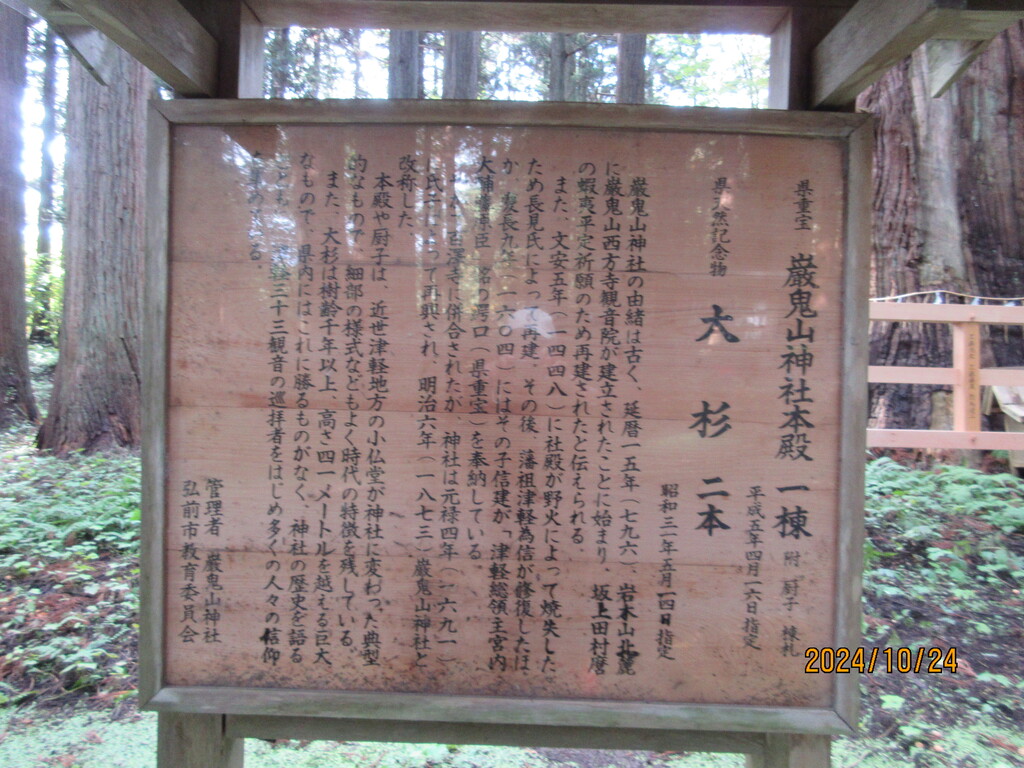 県重宝 巌鬼山神社本殿 一棟 附 厨子 棟札
平成五年四月一六日指定
県天然記念物 大杉 二本
昭和三一年五月一四日指定
巌鬼山神社の由緒は古く、延暦一五年(七九六)、岩木山北麓
に巌鬼山西方寺観音院が建立されたことに始まり、坂上田村麿
の蝦夷平定祈願のため再建されたと伝えられる。
また、文安五年(一四四八)に社殿が野火によって焼失した
ため長見氏によって再建、その後、藩祖津軽為信が修復したほ
か、慶長九年(一六〇四)にはその子信建が「津軽総領主宮内
大輔藤原臣」銘の鰐口(県重宝)を奉納している。
百沢寺に併合されたが、神社は元禄四年(一六九一)
に氏子によって再興され、明治六年(一八七三)巌鬼山神社と
改称した。
本殿や厨子は、近世津軽地方の小仏堂が神社に変わった典型
的なもので、細部の様式などもよく時代の特徴を残している。
また、大杉は樹齢千年以上、高さ四一メートルを越える巨大
なもので、県内にはこれに勝るものがなく、神社の歴史を語る
とともに、津軽三十三観音の巡拝者をはじめ多くの人々の信仰
を集めている。
管理者 巌鬼山神社
弘前市教育委員会
2024/10/24